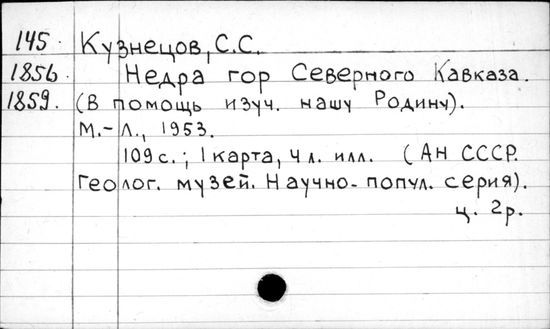 145. Кузнецов, С.С.
1856 Недра гор Северного Кавказа.
1859. (В помощь изуч. нашу Родину).
М.-Л., 1953.
109 с.; 1 карта, 4 л. илл. (Ан СССР.
Геолог. музей. Научно-попул. серия).
ц. 2р.